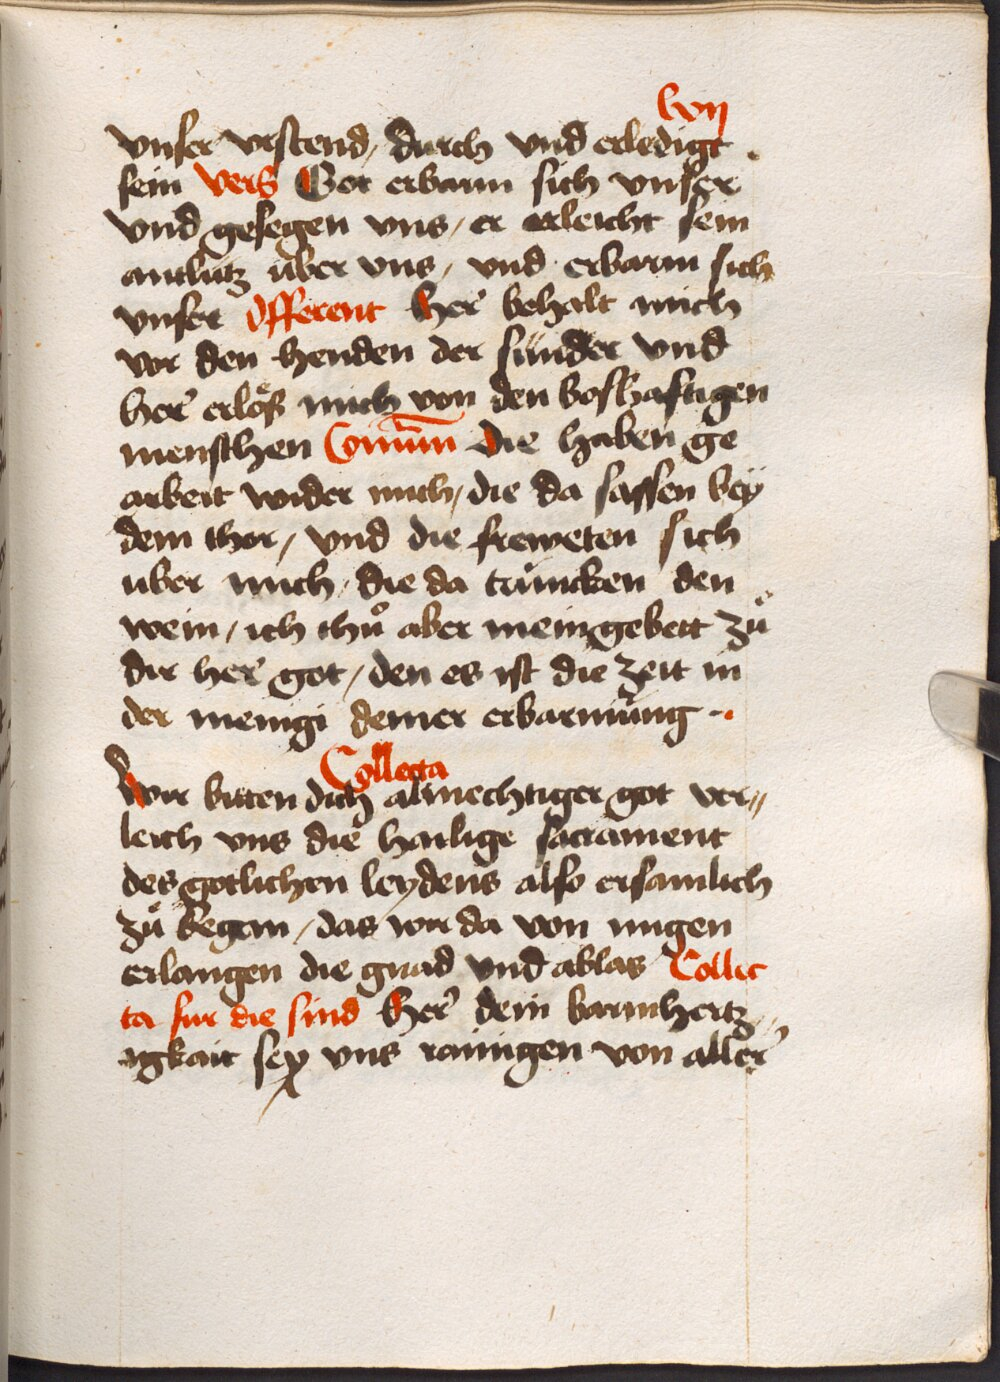 lvij
vnser vrstend / durch vnd erledigt .
sein vers Got erbarm sich vnser
vnd gesegen vns / er erleicht sein
antlütz über vns / vnd erbarm sich
vnser offferent Her behalt mich
vor den henden der sünder vnd
her erlöß mich von den boßhaftigen
menschen Comūm die haben ge
arbeit wider mich / die da sassen beÿ
dem thor / vnd die freweten sich
über mich / die da trůncken den
wein / ich thůn aber mein gebett zů
dir her got / den es ist die zeit in
der menigi deiner erbarmůng .
Collecta
Wir bitten dich almechtiger got ver⸗
leich vns die hailige sacrament
des gotlichen leydens also ersamlich
zů began / das wir da von mugen
erlangen die gnad vnd ablas Collec
ta fur die sind Her dein barmhertz
igkait sey vns rainigen von aller